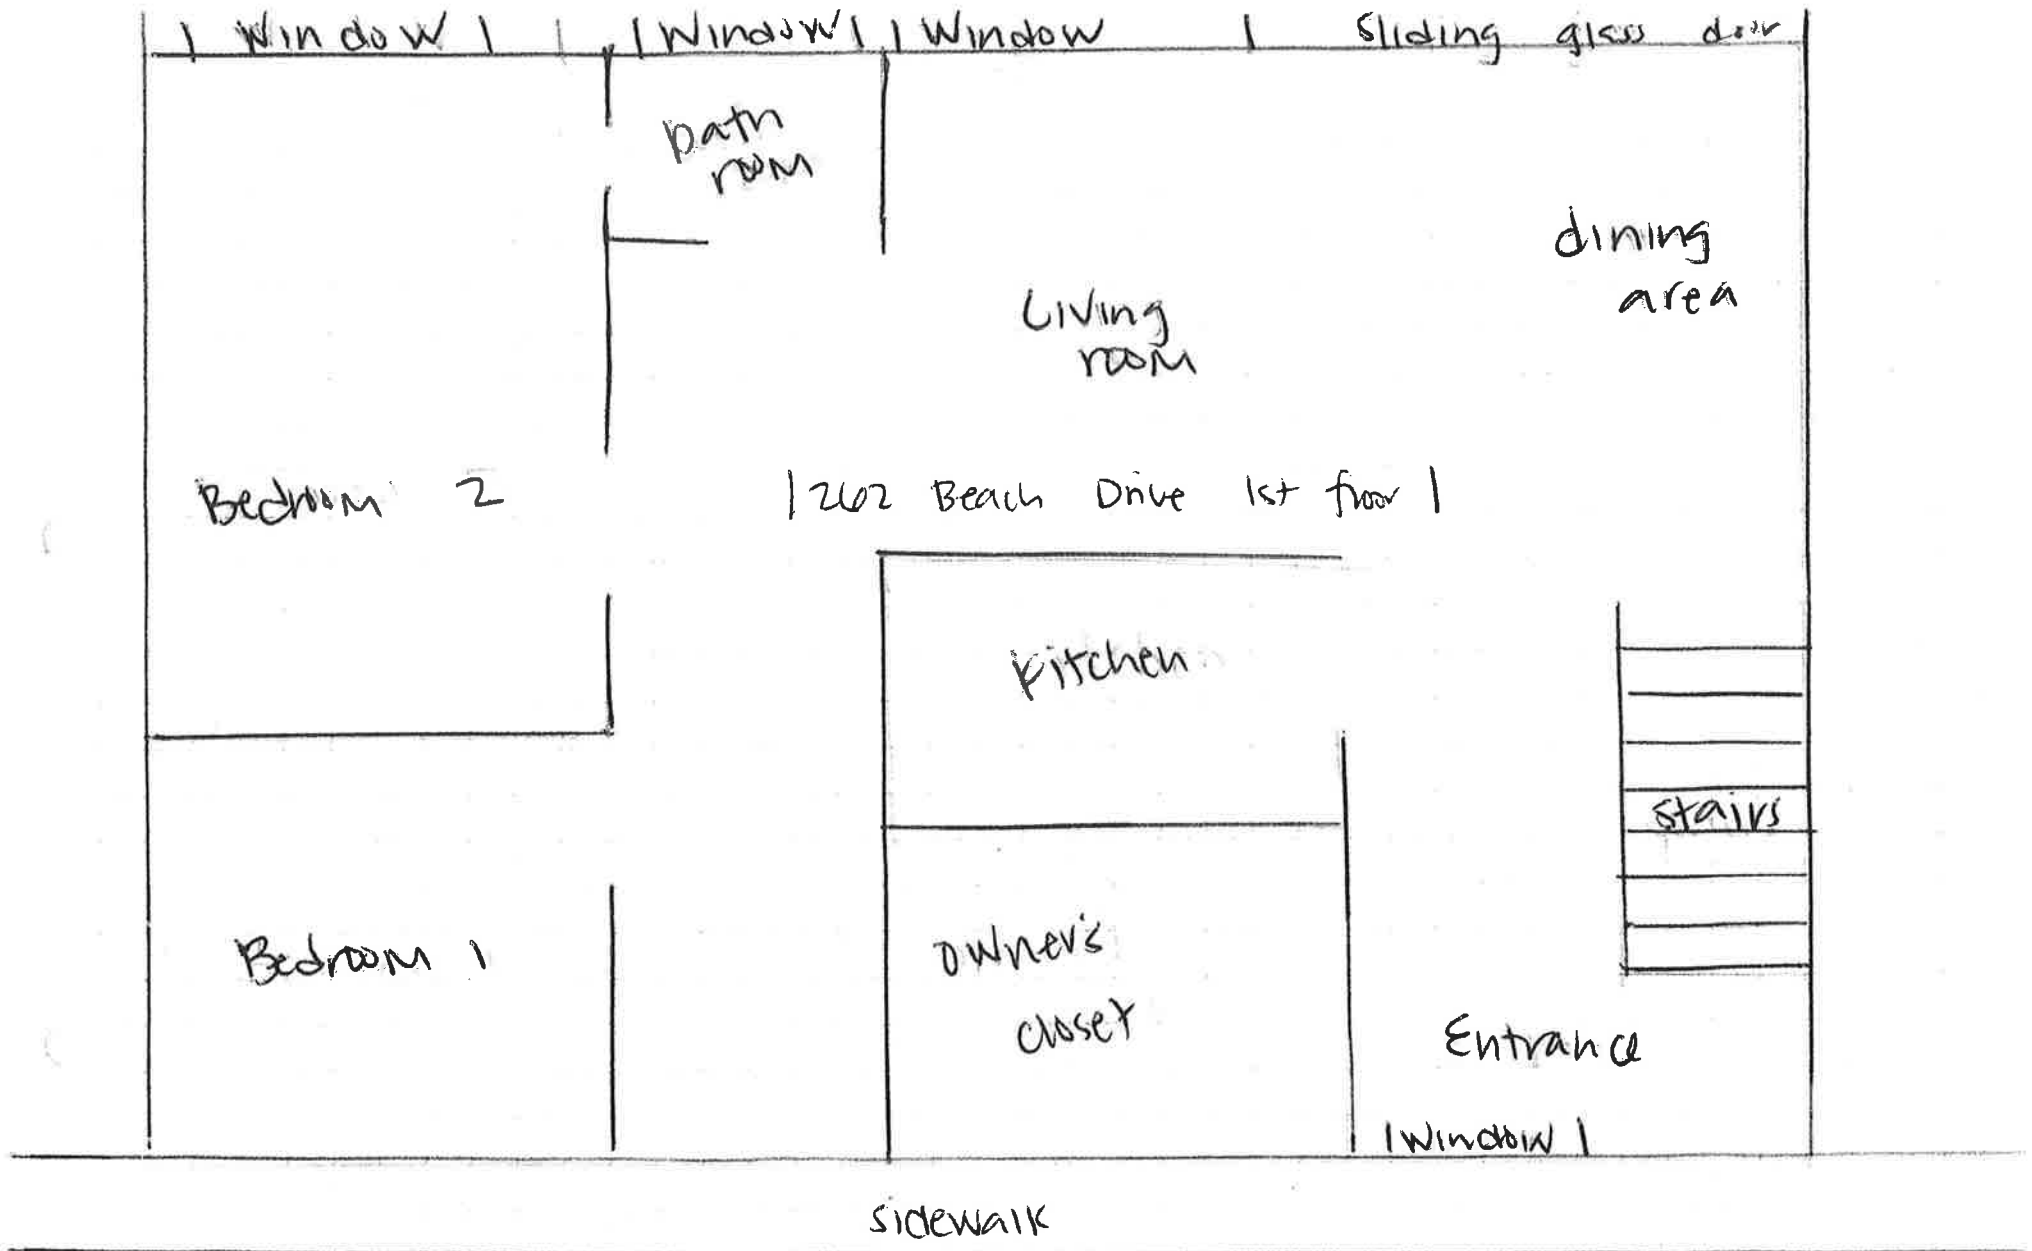 Window
Window
Window
Sliding glass door
bath
room
dining
area
Living
room
Bedroom 2
262 Beach Drive 1st floor
kitchen
stairs
Bedroom 1
owner's
closet
Entrance
Window
sidewalk